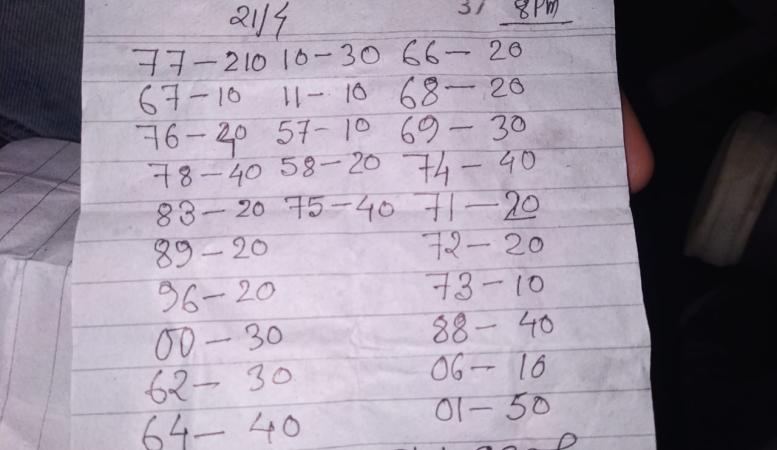 21/4 8PM
77-210 10-30 66-20
67-10 11-10 68-20
76-20 57-10 69-30
78-40 58-20 74-40
83-20 75-40 71-20
89-20 72-20
96-20 73-10
00-30 88-40
62-30 06-10
64-40 01-50